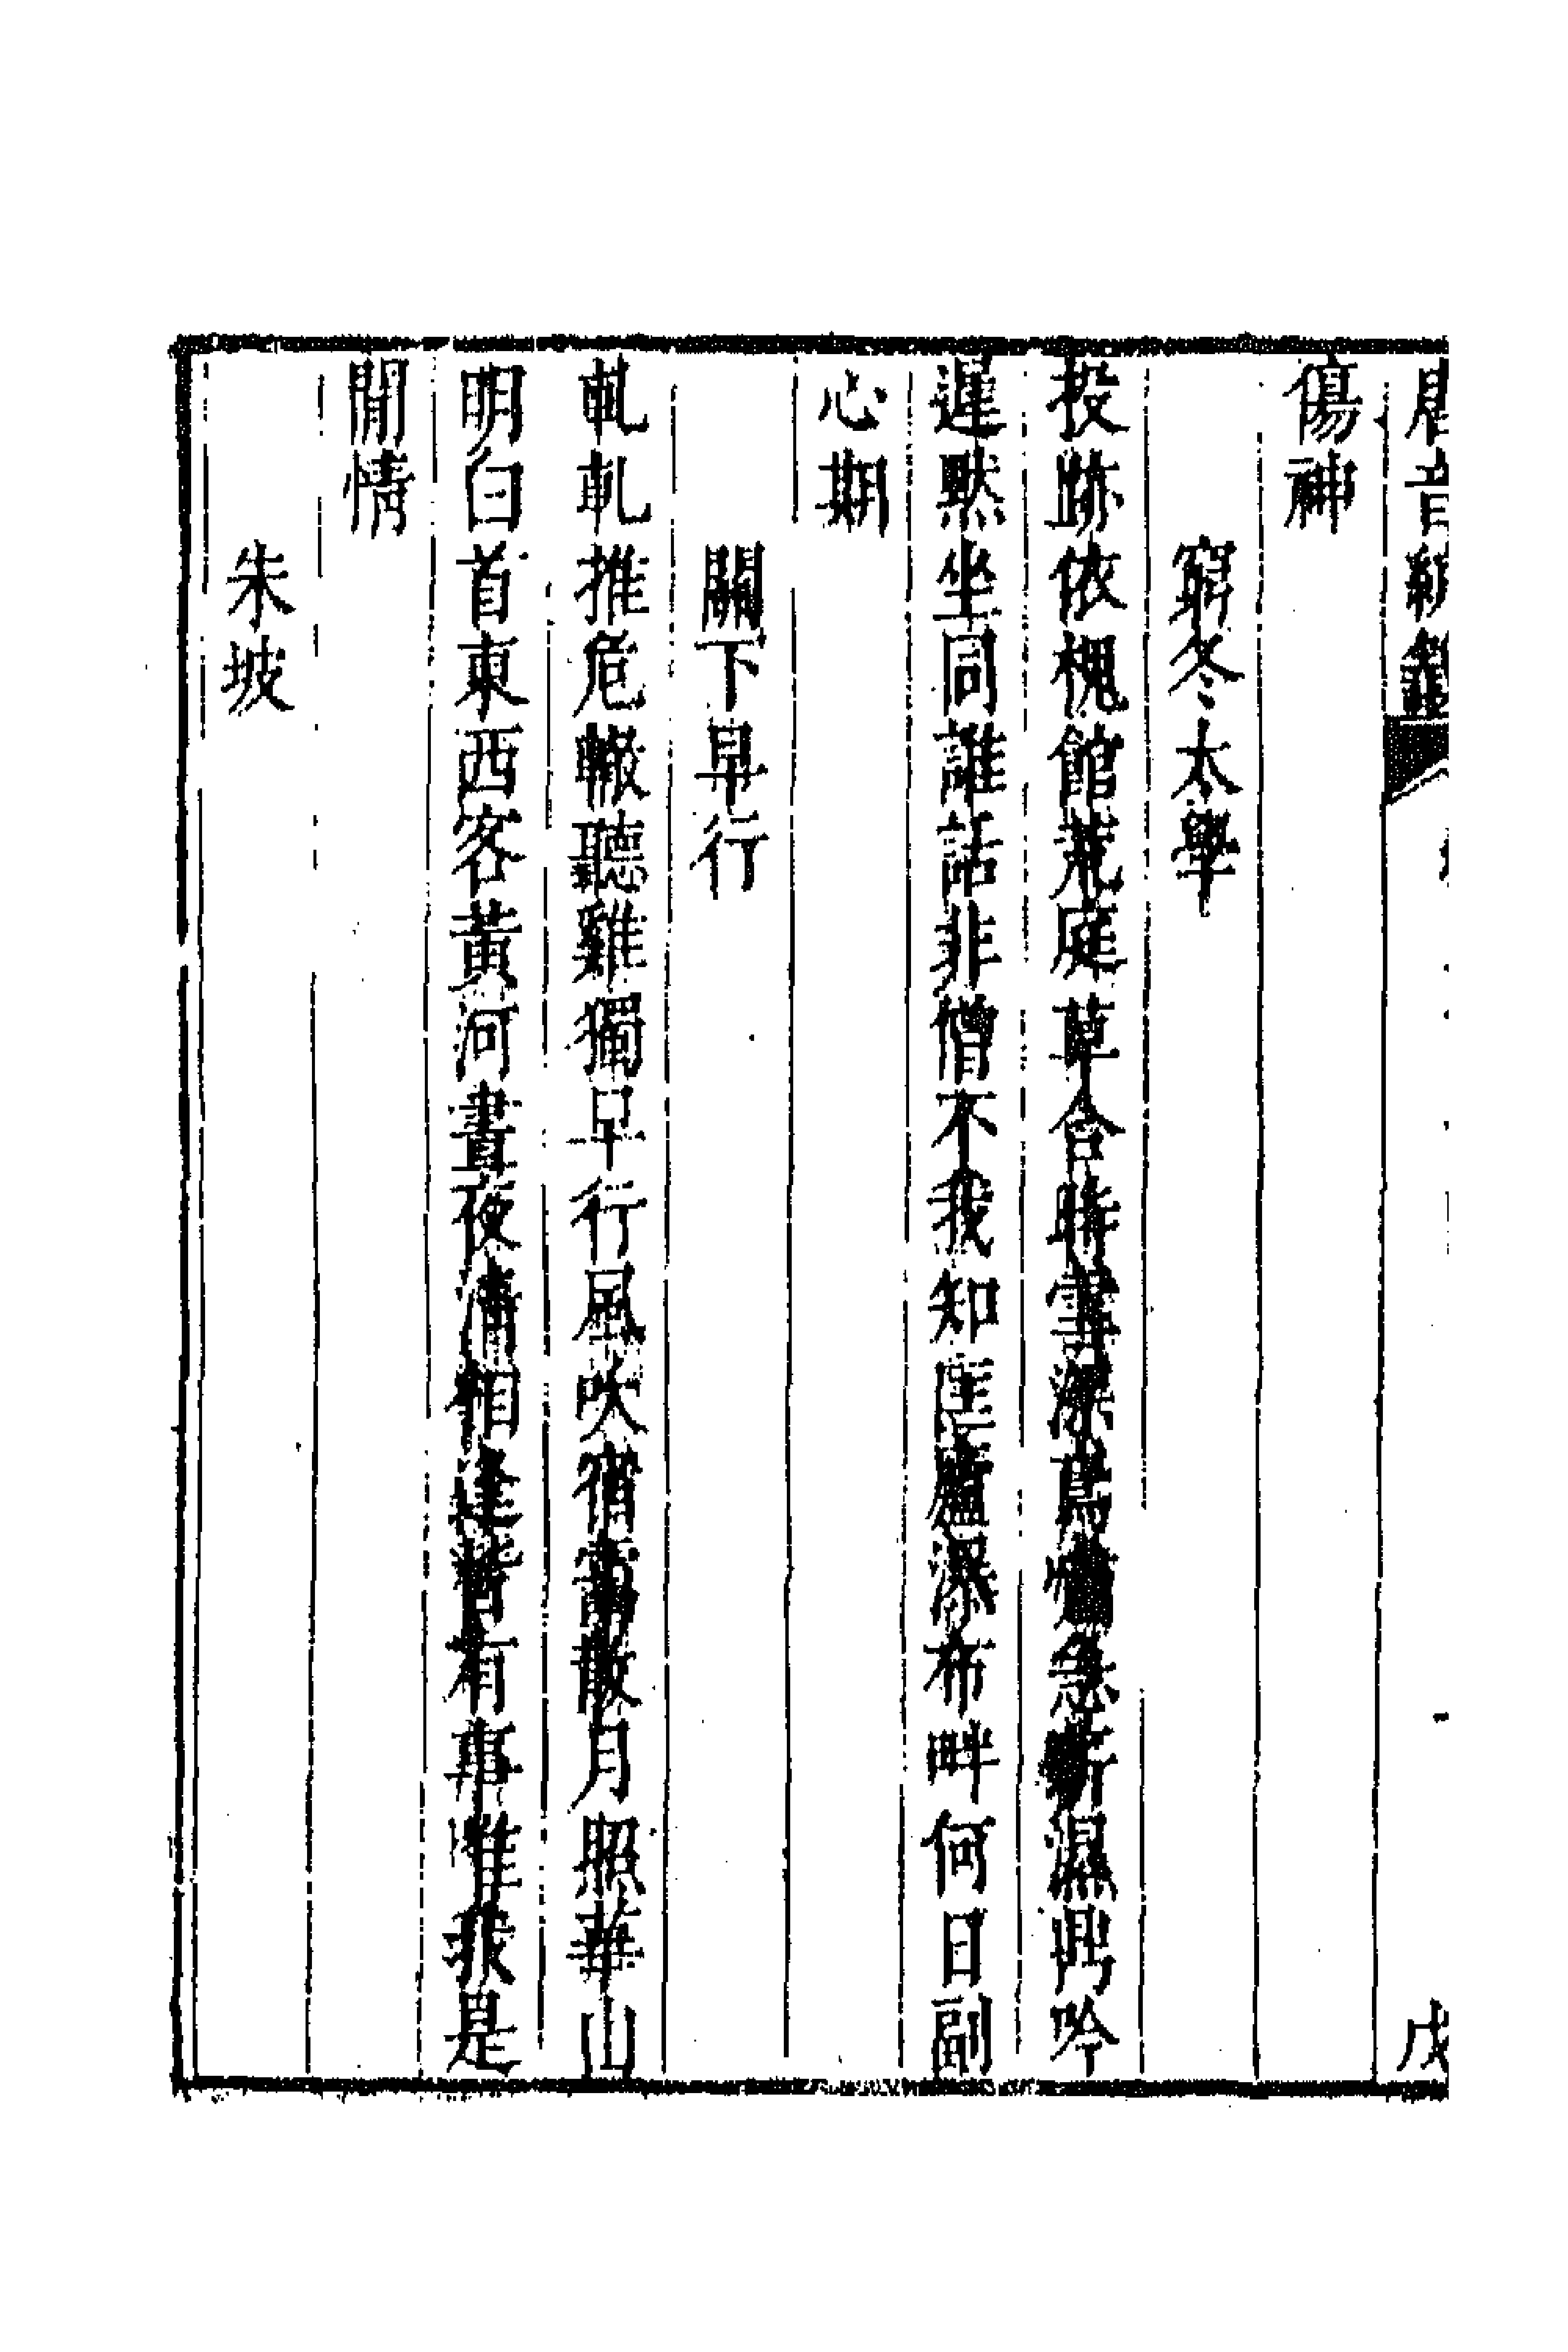 唐音統籤 戊
傷神
窮冬太學
投跡依槐館荒庭草合時雪深鳥啼急薪濕鼎吟
遲默坐同誰話非僧不我知匡廬瀑布畔何日副
心期
關下早行
軋軋推危轍聽雞獨早行風吹宿靄散月照華山
明白首東西客黃河晝夜清相逢皆有事唯我是
閒情
朱坡